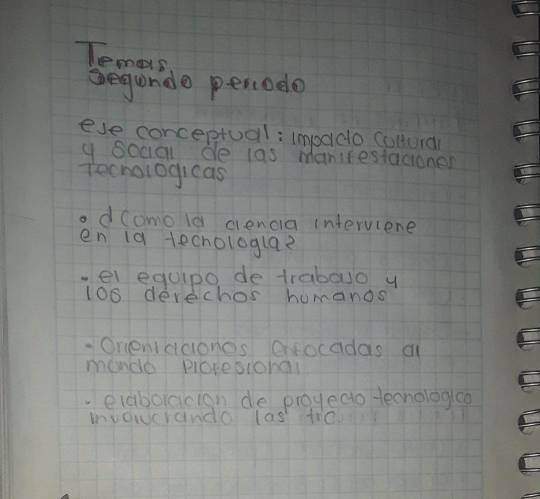 Temas
Segundo periodo
eje conceptual: impacto cultural
y social de las manifestaciones
tecnologicas
• ¿Como la ciencia interviene
en la tecnologia?
- el equipo de trabajo y
los derechos humanos
- Orientaciones enfocadas al
mundo profesional
- elaboracion de proyecto tecnologico
involucrando las tic